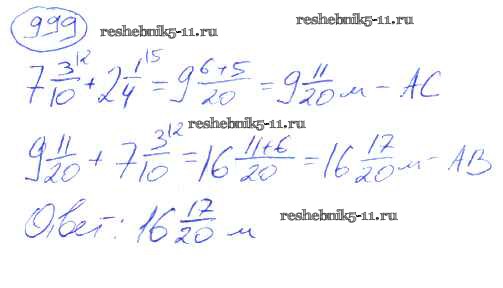 999
reshebnik5-11.ru
reshebnik5-11.ru
7 3/10 |2 + 2 1/4 |5 = 9 (6+5)/20 = 9 11/20 м - AC
reshebnik5-11.ru
9 11/20 + 7 3/10 |2 = 16 (11+6)/20 = 16 17/20 м - AB
Ответ: 16 17/20 м
reshebnik5-11.ru